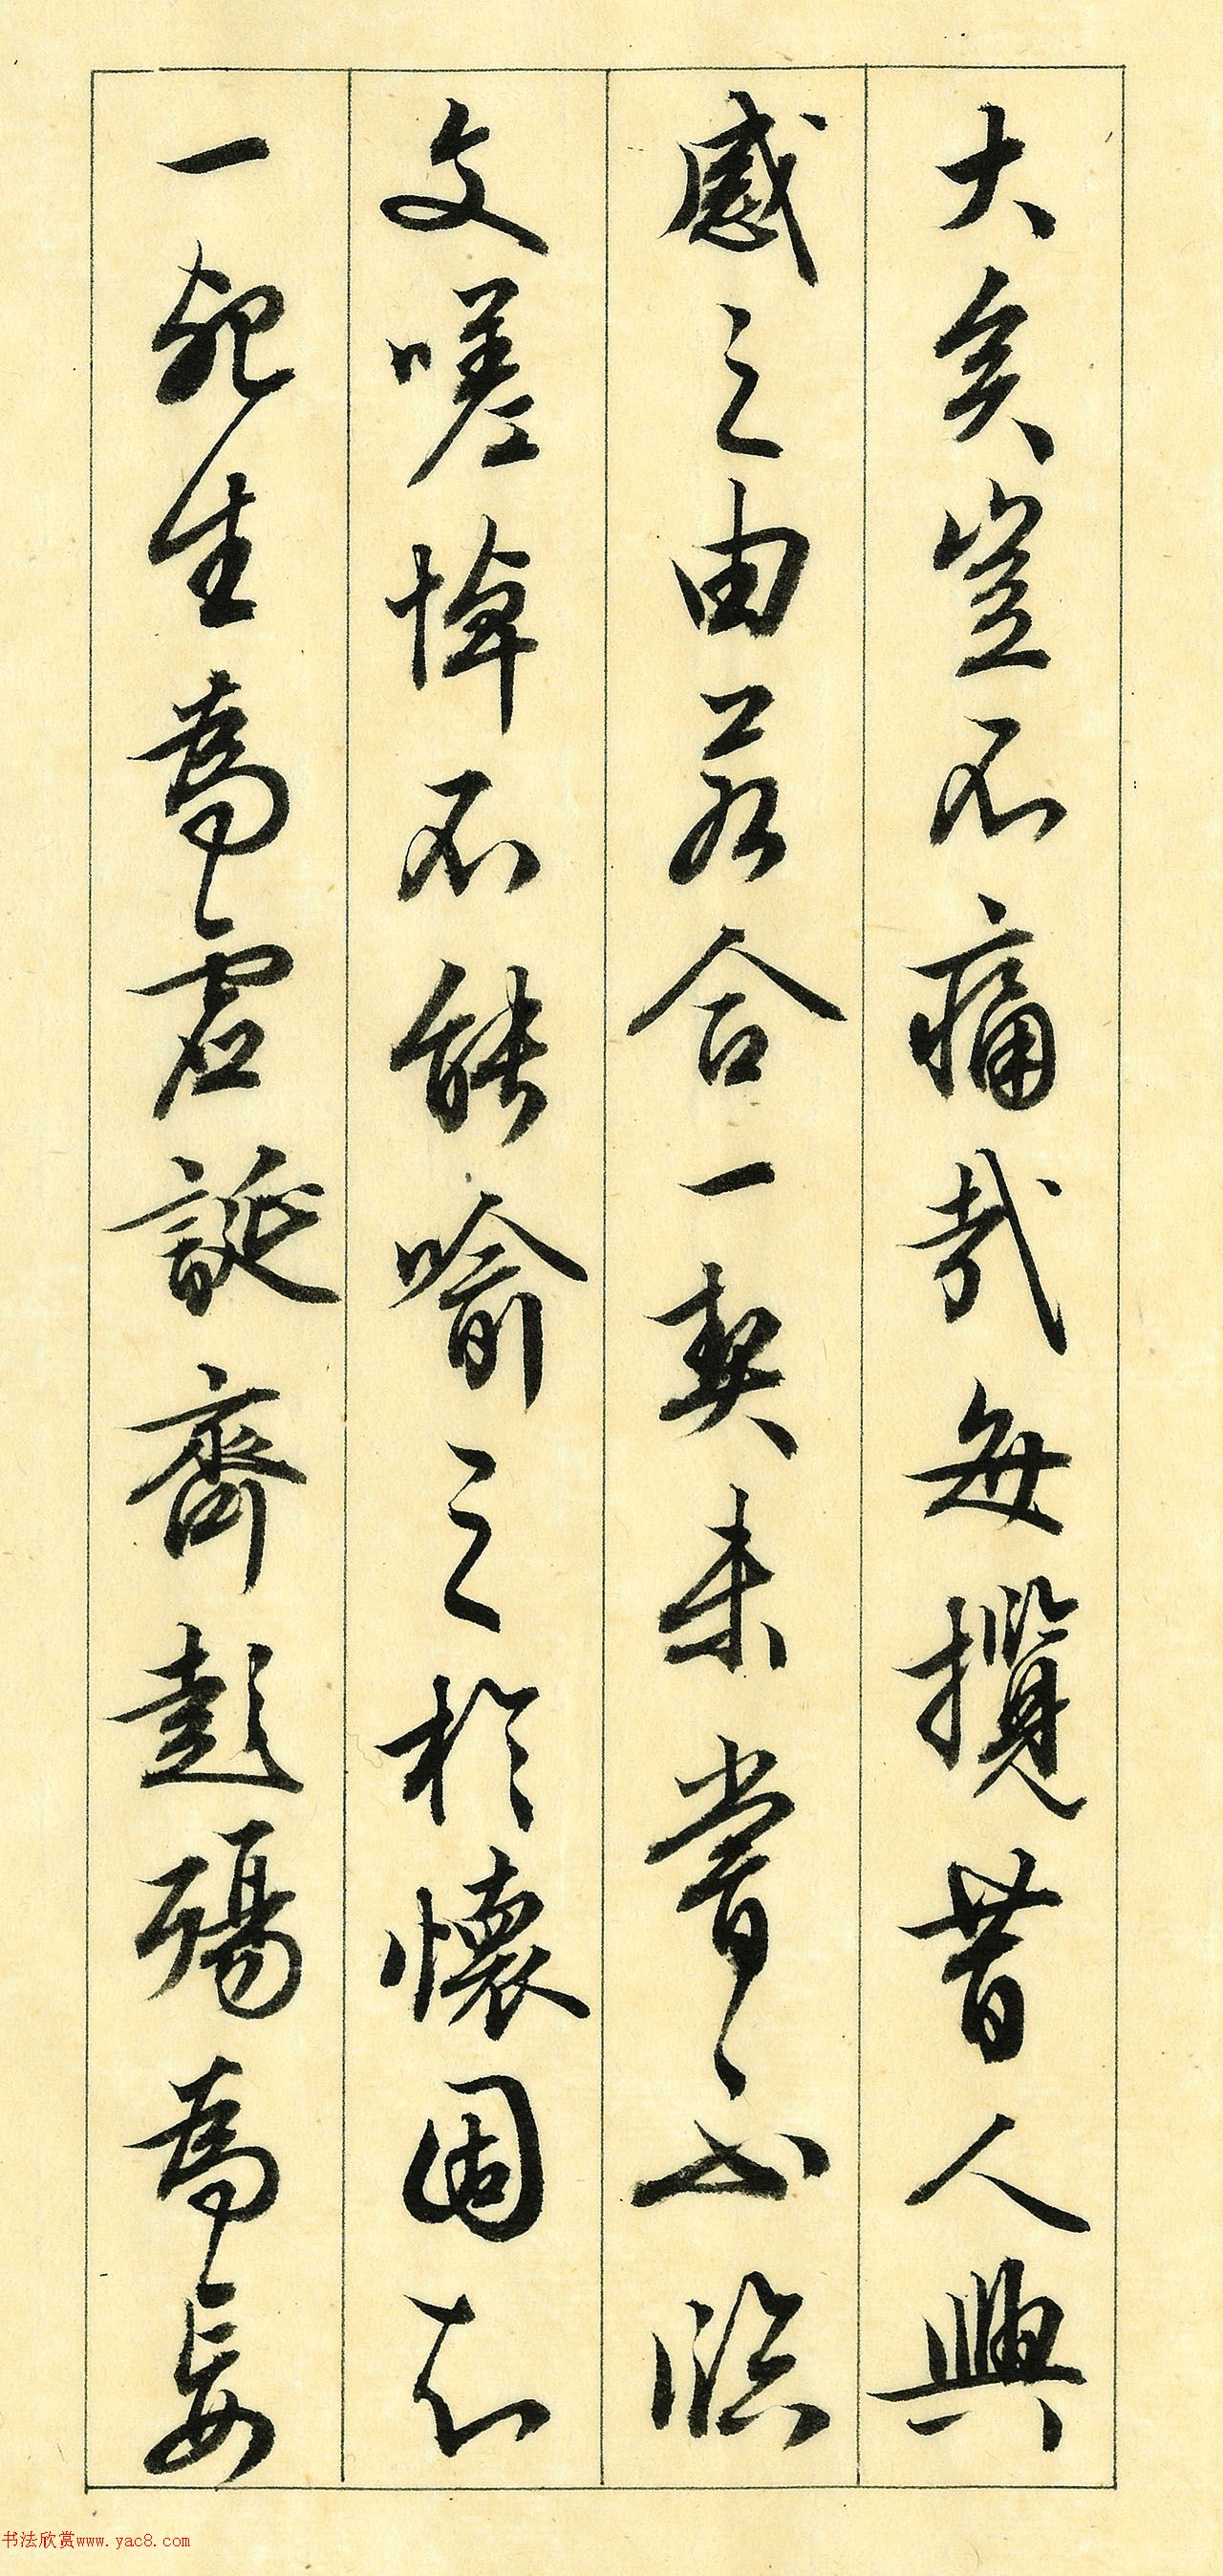 大矣豈不痛哉每攬昔人興
感之由若合一契未嘗不臨
文嗟悼不能喻之於懷固知
一死生為虛誕齊彭殤為妄
书法欣赏www.yac8.com